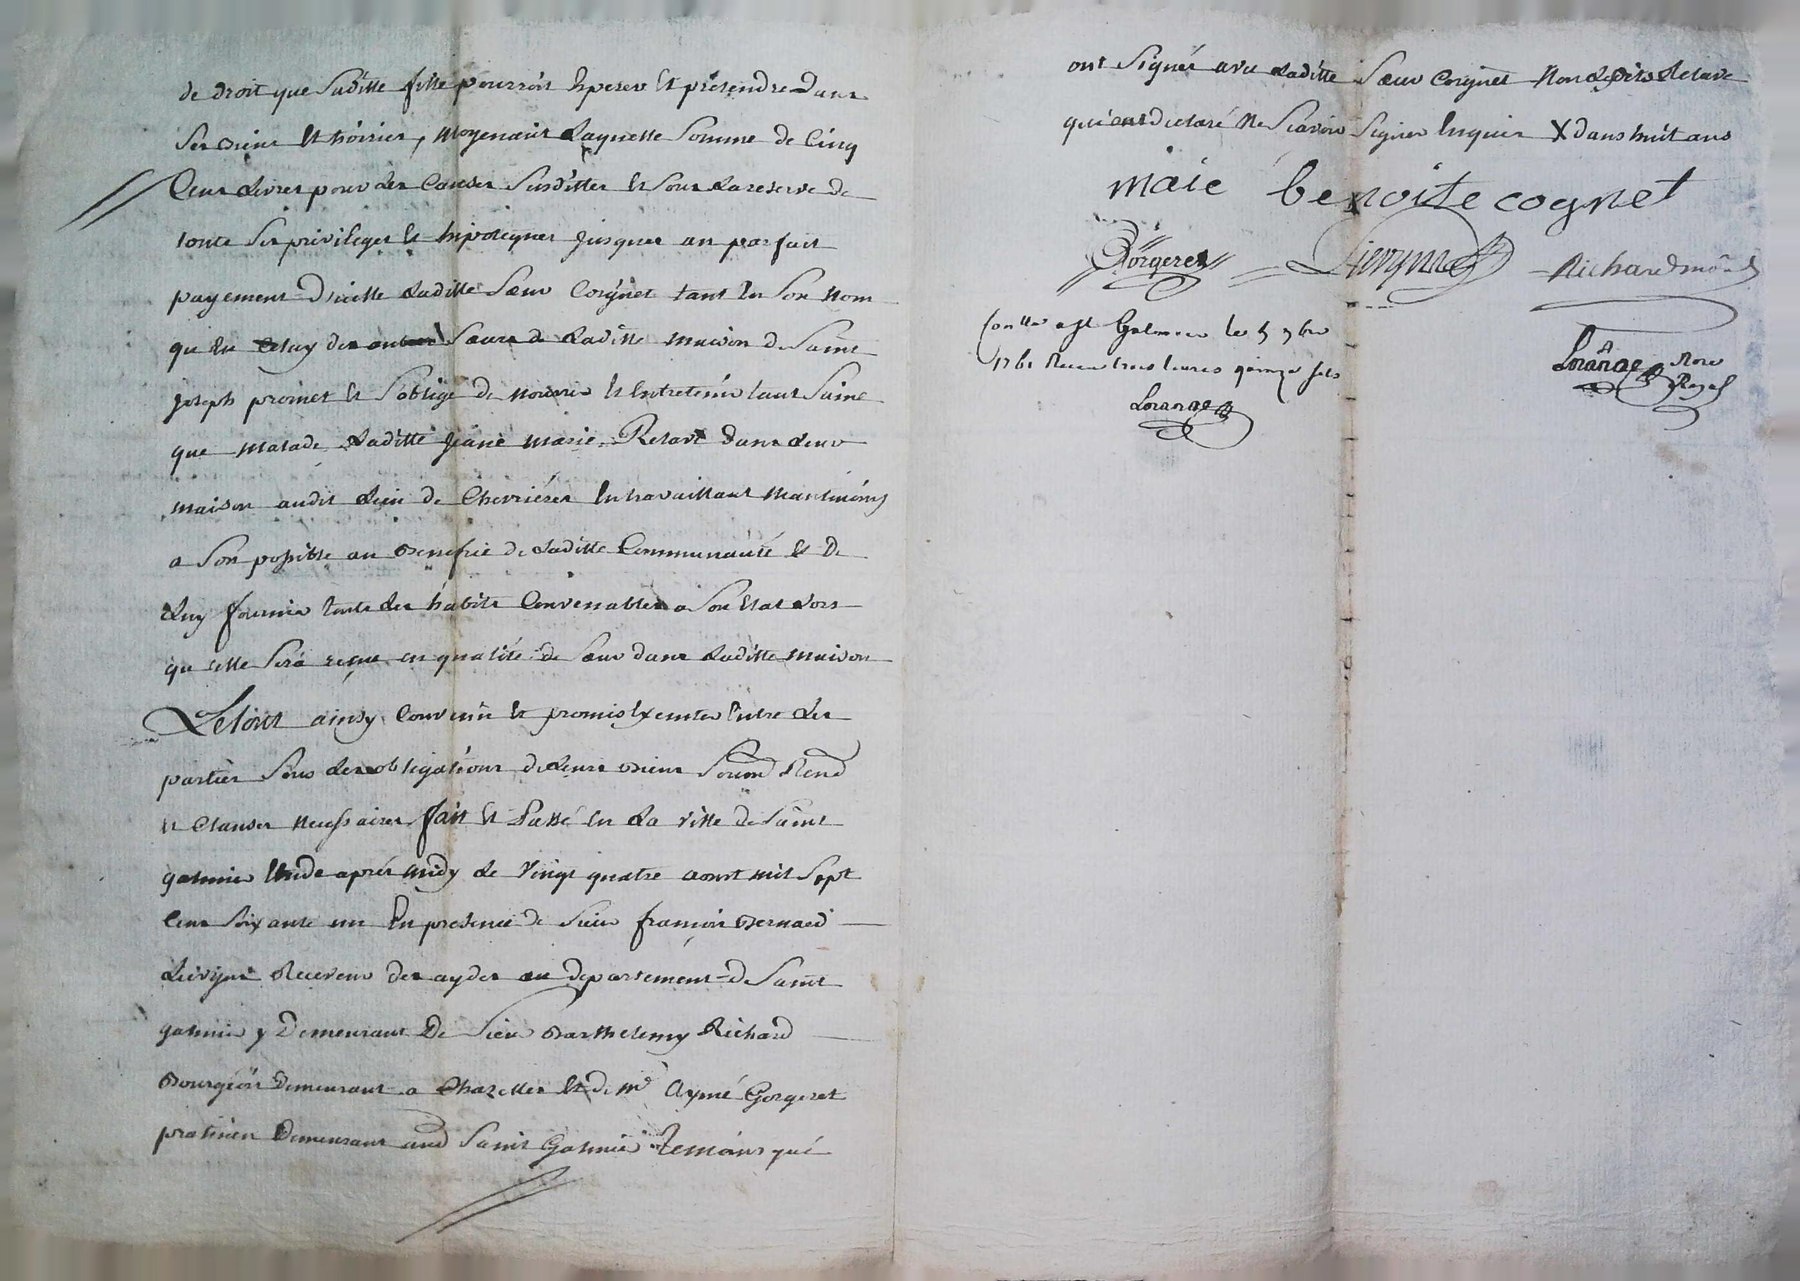 de droit que Saditte fille pourroit Esperer Et prétendre dans
Ses biens Et hóiries, moyenant Laquelle Somme de Cinq
Cent Livres pour Les Causes Susdittes et Sous La reserve de
touts Ses privileges Et hipoteques jusques au parfait
payement d'icelle Laditte Sœur Corgnet tant En Son Nom
qu'En Celuy des autres Sœurs de Laditte maison de Saint
joseph promet Et S'oblige de nourrir Et Entretenir tant Saine
que malade Laditte jeane marie Retave dans Leur
maison audit Lieu de Chevriéres En travaillant
a Son possible au benefice de Laditte Communauté Et de
Luy fournir touts Les habits Convenables a Son Etat Lors
qu'elle Sera reçue en qualité de Sœur dans Laditte maison
Le tout ainsy Convenu Et promis Executer Entre Les
parties Sous Les obligations de Leurs biens Soum Renō
et Clauses necessaires fait Et Passé En La Ville de Saint
galmier Etude aprés midy Le Vingt quatre aoust mil Sept
Cent Soixante un En presence de Sieur françois bernard
Receveur des aydes au département de Saint
galmier y Demeurant De Sieur barthelemy Richard
bourgeois Demeurant a Chazelles Et de Mᵉ Aymé Gorgeret
praticien Demeurant aud Saint Galmier Temoins qui
ont Signé avec Laditte Sœur Corgnet Non Lesdits Retave
qui ont déclaré ne Scavoir Signer Enquis X dans huit ans
maie benoite cognet
Gorgeret Richard
Conllé a St Galmier le 5 7bre
1761 Reçu trois livres quinze sols
Lorange Nore
Royal
Lorange